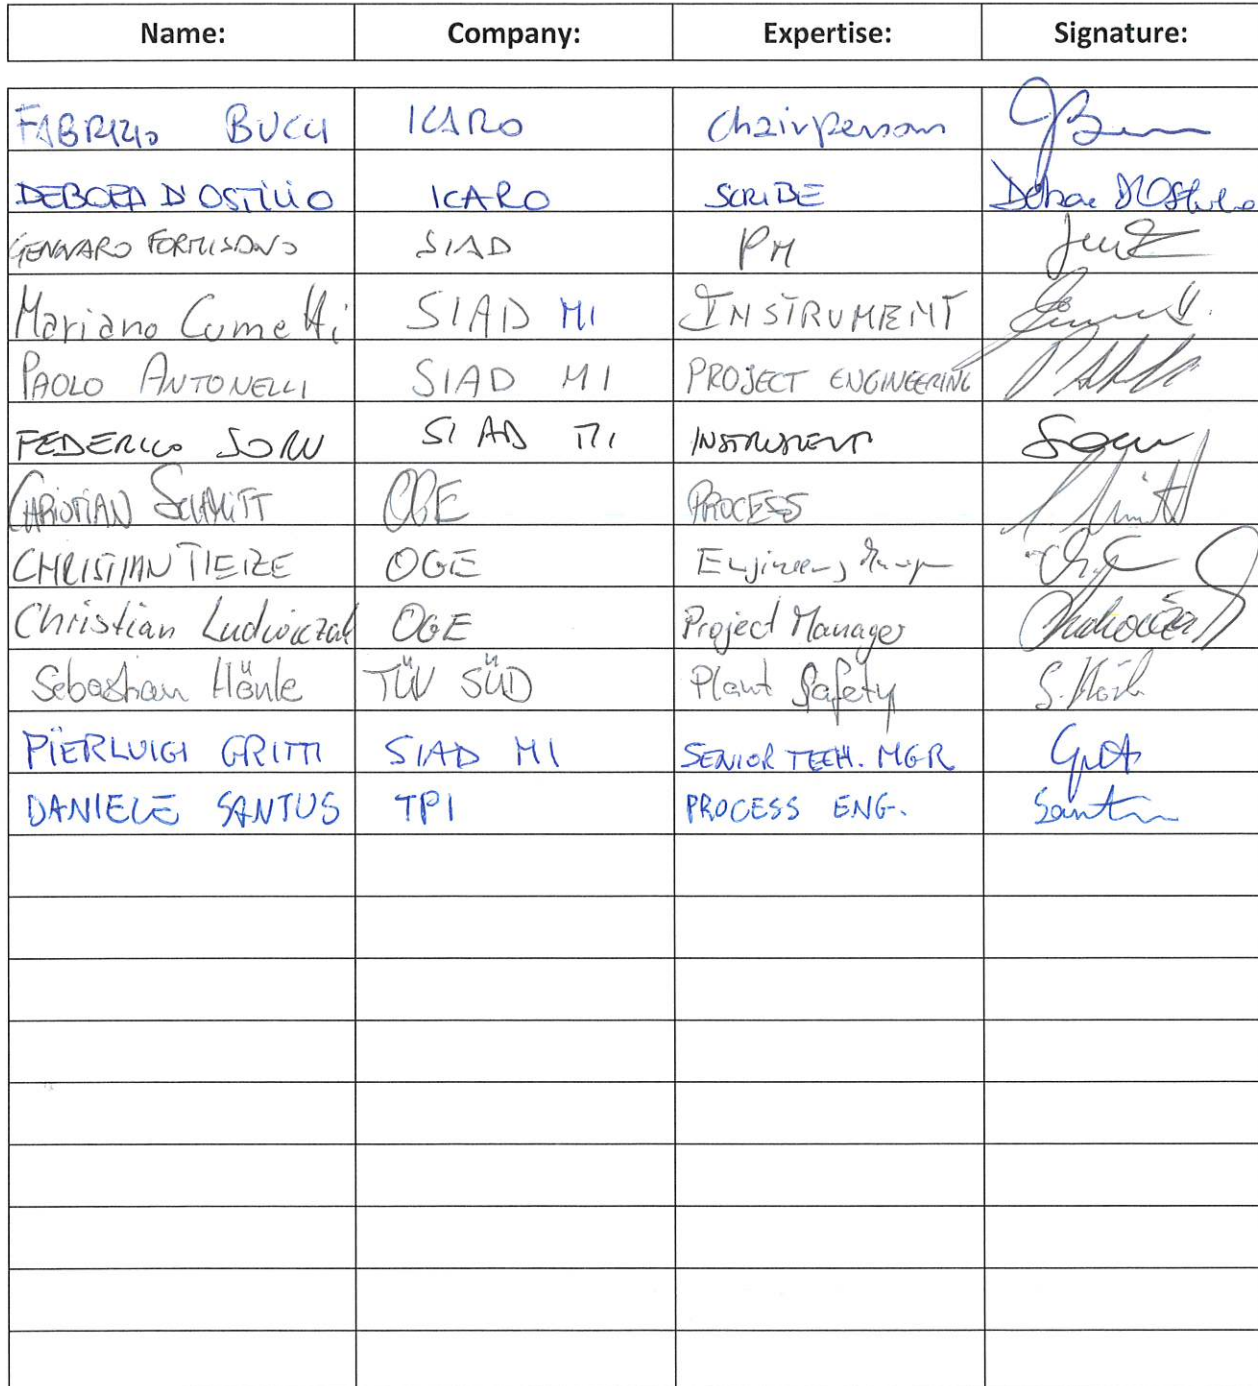 Name: Company: Expertise: Signature:
FABRIZIO BUCCI ICARO Chairperson
DEBORA D'OSTILIO ICARO SCRIBE Debora D'Ostilio
GENNARO FORMISANO SIAD PM
Mariano Cometti SIAD MI INSTRUMENT
PAOLO ANTONELLI SIAD MI PROJECT ENGINEERING
FEDERICO SORU SIAD MI INSTRUMENT Soru
CHRISTIAN SCHMITT OGE PROCESS
CHRISTIAN TIETZE OGE Engineering
Christian Ludwiczak OGE Project Manager Ludwiczak
Sebastian Hönle TÜV SÜD Plant Safety
PIERLUIGI GRITTI SIAD MI SENIOR TECH. MGR
DANIELE SANTUS TPI PROCESS ENG.